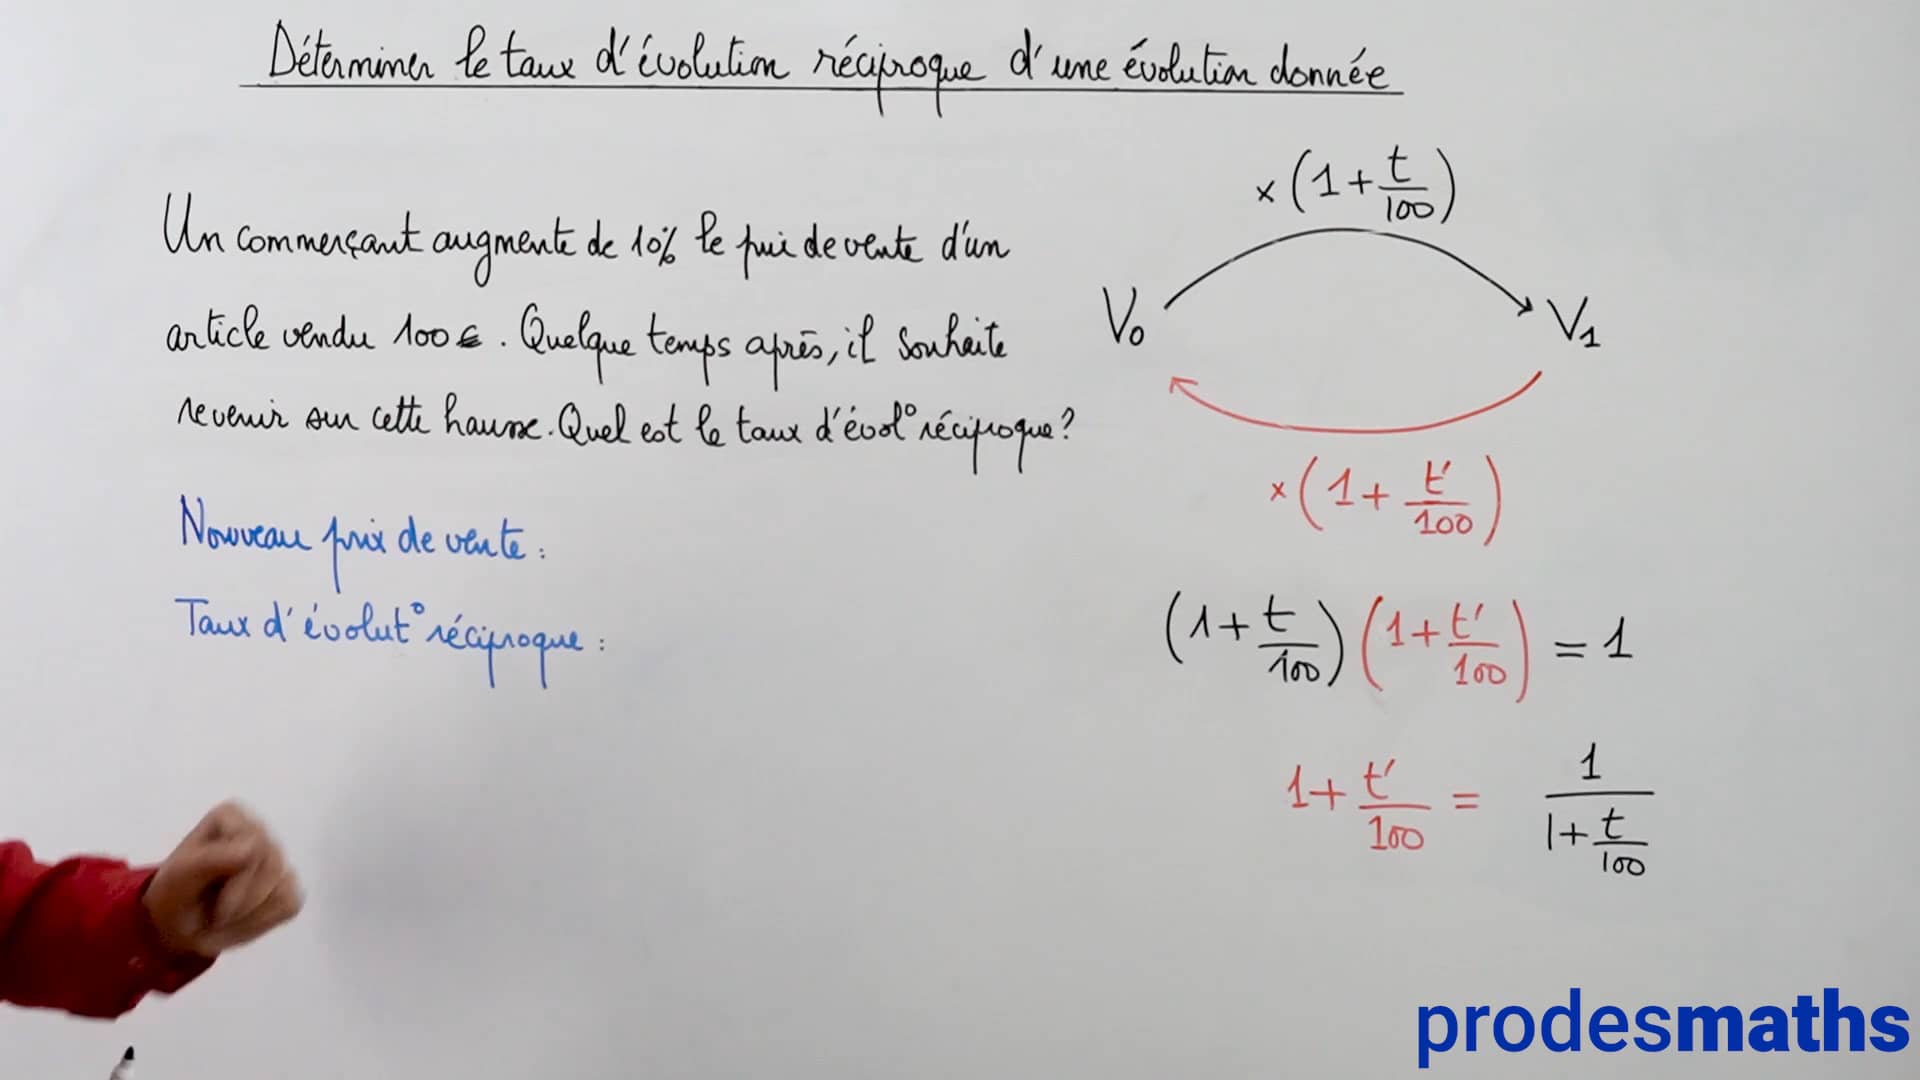 Déterminer le taux d'évolution réciproque d'une évolution donnée
Un commerçant augmente de 10% le prix de vente d'un
article vendu 100€. Quelque temps après, il souhaite
revenir sur cette hausse. Quel est le taux d'évol° réciproque?
Nouveau prix de vente :
Taux d'évolut° réciproque :
×(1+t/100)
V₀ V₁
×(1+t'/100)
(1+t/100)(1+t'/100) = 1
1+t'/100 = 1/(1+t/100)
prodesmaths